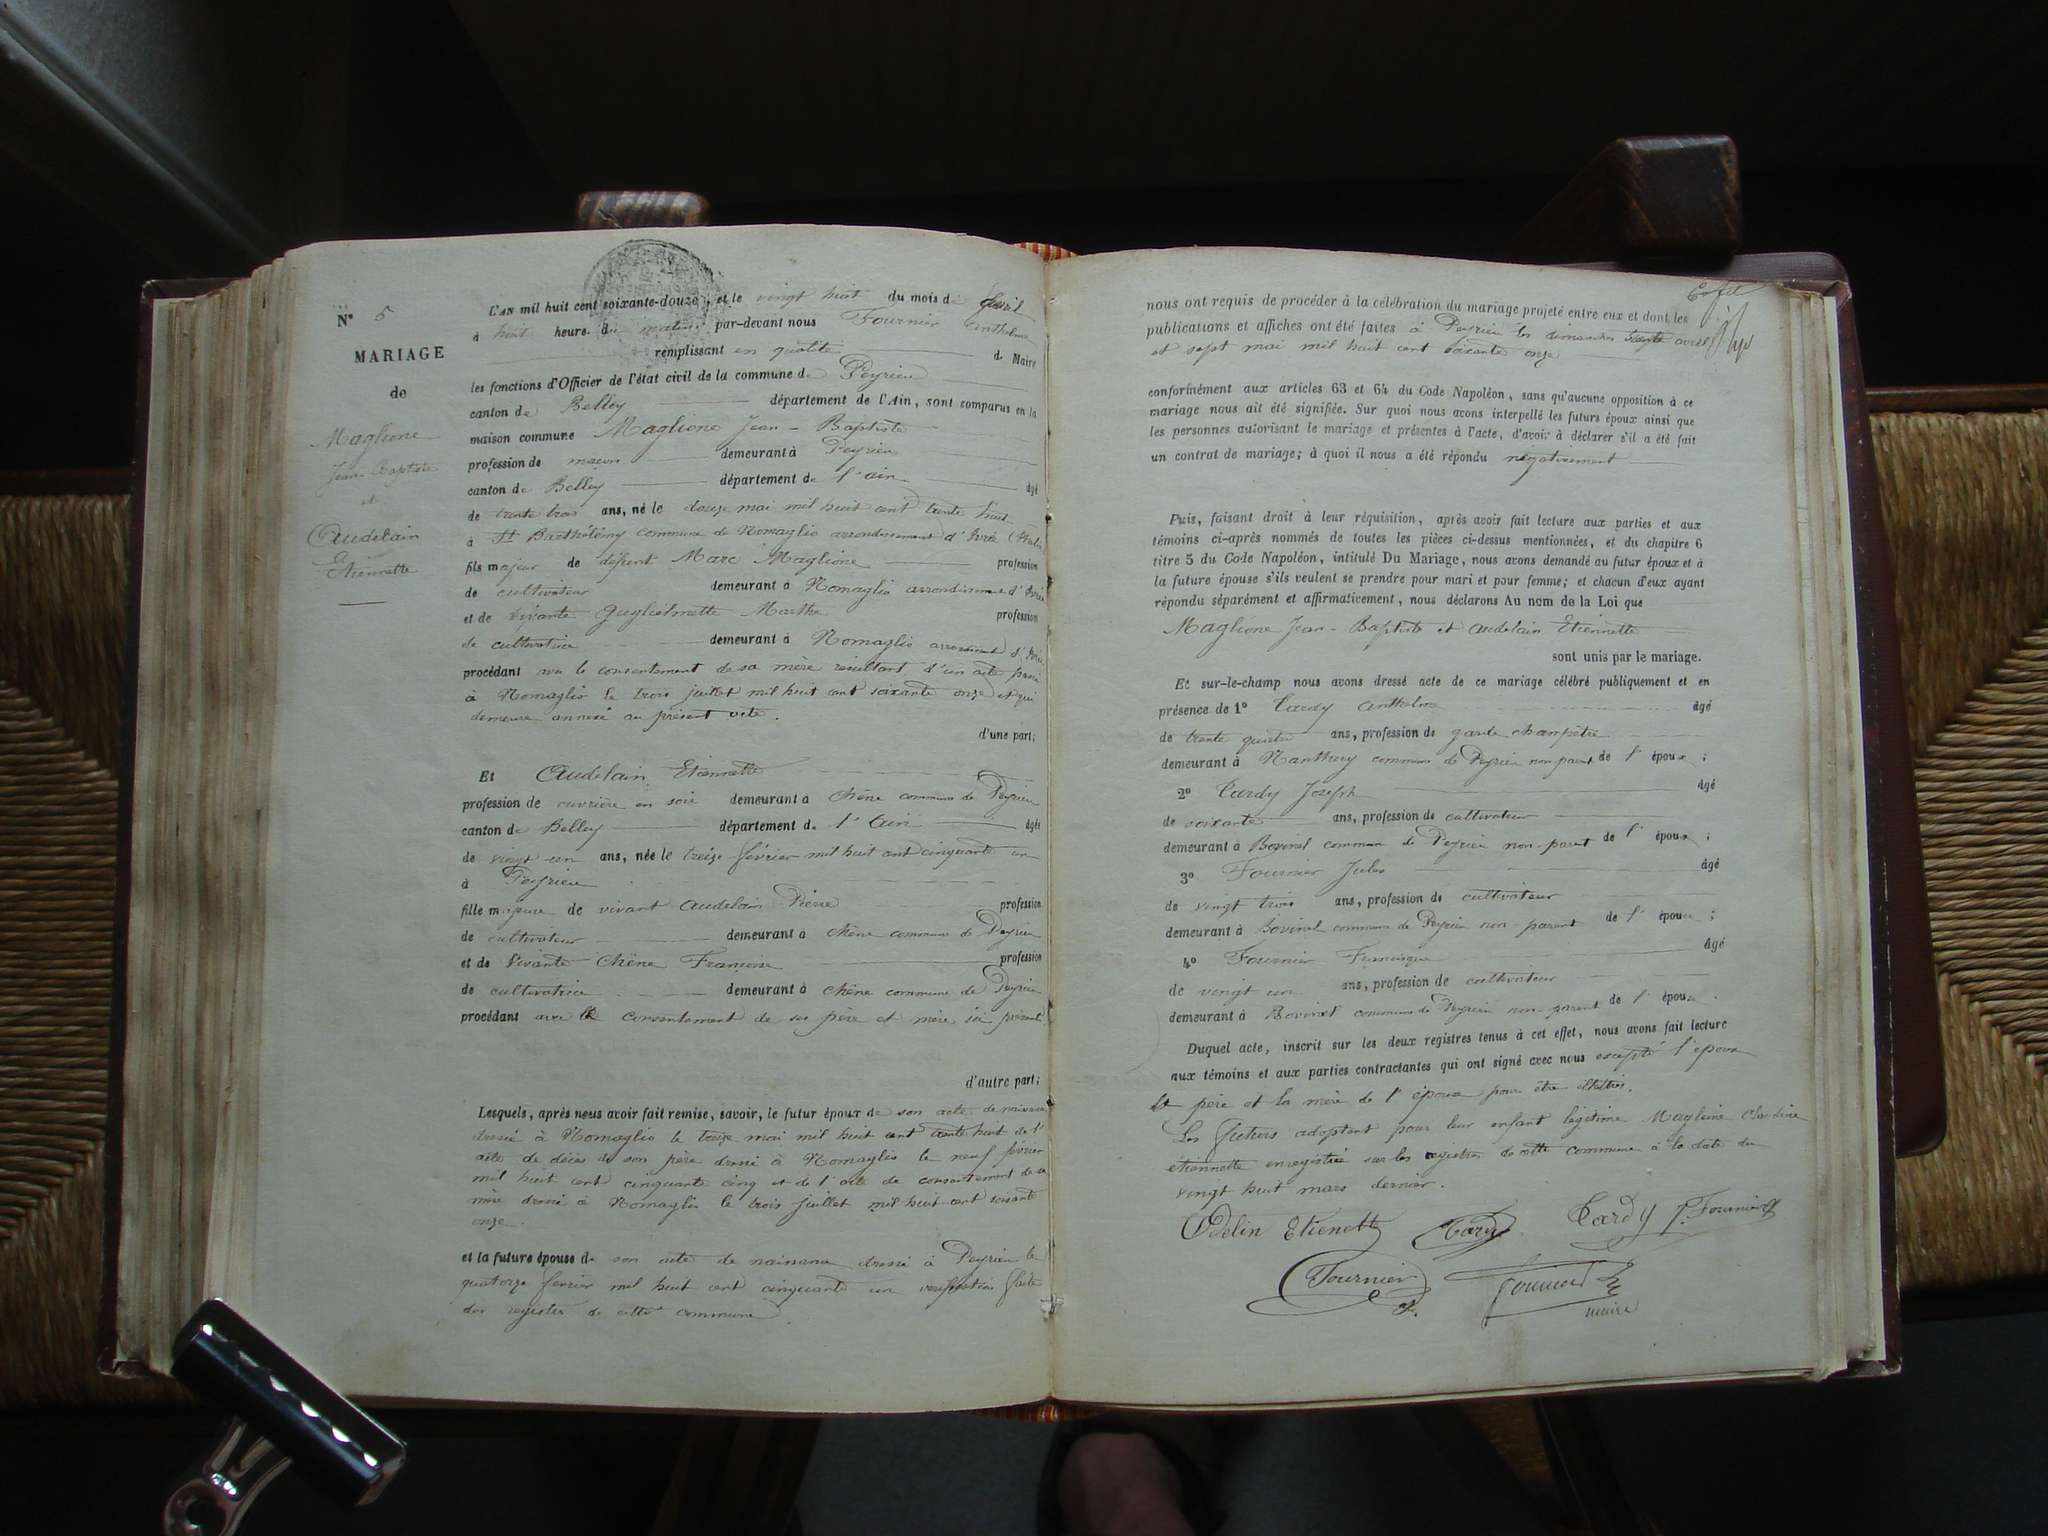 N° 5
MARIAGE
de
Maglione
Jean-Baptiste
et
Audelain
Etiennette
L'AN mil huit cent soixante-douze, et le vingt huit du mois d avril
à huit heure du matin par-devant nous Fournier Anthelme
remplissant en qualité de Maire
les fonctions d'Officier de l'état civil de la commune de Peyrieu
canton de Belley département de l'Ain, sont comparus en la
maison commune Maglione Jean-Baptiste
profession de maçon demeurant à Peyrieu
canton de Belley département de l'ain âgé
de trente trois ans, né le douze mai mil huit cent trente huit
à St Barthélémy commune de Nomaglio arrondissement d'Ivrée
fils majeur de défunt Marc Maglione profession
de cultivateur demeurant à Nomaglio arrondissement d'Ivrée
et de vivante Guglielmette Marthe profession
de cultivatrice demeurant à Nomaglio arrondissement d'Ivrée
procédant avec le consentement de sa mère résultant d'un acte passé
à Nomaglio le trois juillet mil huit cent soixante onze et qui
demeure annexé au présent acte.
d'une part;
Et Audelain Etiennette
profession de ouvrière en soie demeurant à Chêne commune de Peyrieu
canton de Belley département de l'Ain âgée
de vingt un ans, née le treize février mil huit cent cinquante un
à Peyrieu
fille majeure de vivant Audelain Pierre profession
de cultivateur demeurant à Chêne commune de Peyrieu
et de vivante Chêne Françoise profession
de cultivatrice demeurant à Chêne commune de Peyrieu
procédant avec le consentement de ses père et mère ici présents
d'autre part;
Lesquels, après nous avoir fait remise, savoir, le futur époux de son acte de naissance
dressé à Nomaglio le treize mai mil huit cent trente huit de l'
acte de décès de son père dressé à Nomaglio le neuf février
mil huit cent cinquante cinq et de l'acte de consentement de sa
mère dressé à Nomaglio le trois juillet mil huit cent soixante
onze.
et la future épouse de son acte de naissance dressé à Peyrieu le
quatorze février mil huit cent cinquante un vérification faite
des registres de cette commune
nous ont requis de procéder à la célébration du mariage projeté entre eux et dont les
publications et affiches ont été faites à Peyrieu les dimanches trente avril
et sept mai mil huit cent soixante onze
conformément aux articles 63 et 64 du Code Napoléon, sans qu'aucune opposition à ce
mariage nous ait été signifiée. Sur quoi nous avons interpellé les futurs époux ainsi que
les personnes autorisant le mariage et présentes à l'acte, d'avoir à déclarer s'il a été fait
un contrat de mariage; à quoi il nous a été répondu négativement
Puis, faisant droit à leur réquisition, après avoir fait lecture aux parties et aux
témoins ci-après nommés de toutes les pièces ci-dessus mentionnées, et du chapitre 6
titre 5 du Code Napoléon, intitulé Du Mariage, nous avons demandé au futur époux et à
la future épouse s'ils veulent se prendre pour mari et pour femme; et chacun d'eux ayant
répondu séparément et affirmativement, nous déclarons Au nom de la Loi que
Maglione Jean-Baptiste et Audelain Etiennette
sont unis par le mariage.
Et sur-le-champ nous avons dressé acte de ce mariage célébré publiquement et en
présence de 1° Tardy Anthelme âgé
de trente quatre ans, profession de garde champêtre
demeurant à Nanthuy commune de Peyrieu non parent de l'époux;
2° Tardy Joseph âgé
de soixante ans, profession de cultivateur
demeurant à Bovinel commune de Peyrieu non-parent de l'époux;
3° Fournier Jules âgé
de vingt trois ans, profession de cultivateur
demeurant à Bovinel commune de Peyrieu non-parent de l'épouse;
4° Fournier Francisque âgé
de vingt un ans, profession de cultivateur
demeurant à Bovinel commune de Peyrieu non-parent de l'épouse.
Duquel acte, inscrit sur les deux registres tenus à cet effet, nous avons fait lecture
aux témoins et aux parties contractantes qui ont signé avec nous excepté l'époux
le père et la mère de l'épouse pour être illettrés.
Les époux adoptent pour leur enfant légitime Maglione
etiennette enregistrée sur les registres de cette commune à la date du
vingt huit mars dernier.
Odelin Etienett Tardy Tardy J. Fournier
Fournier F. Fournier
maire